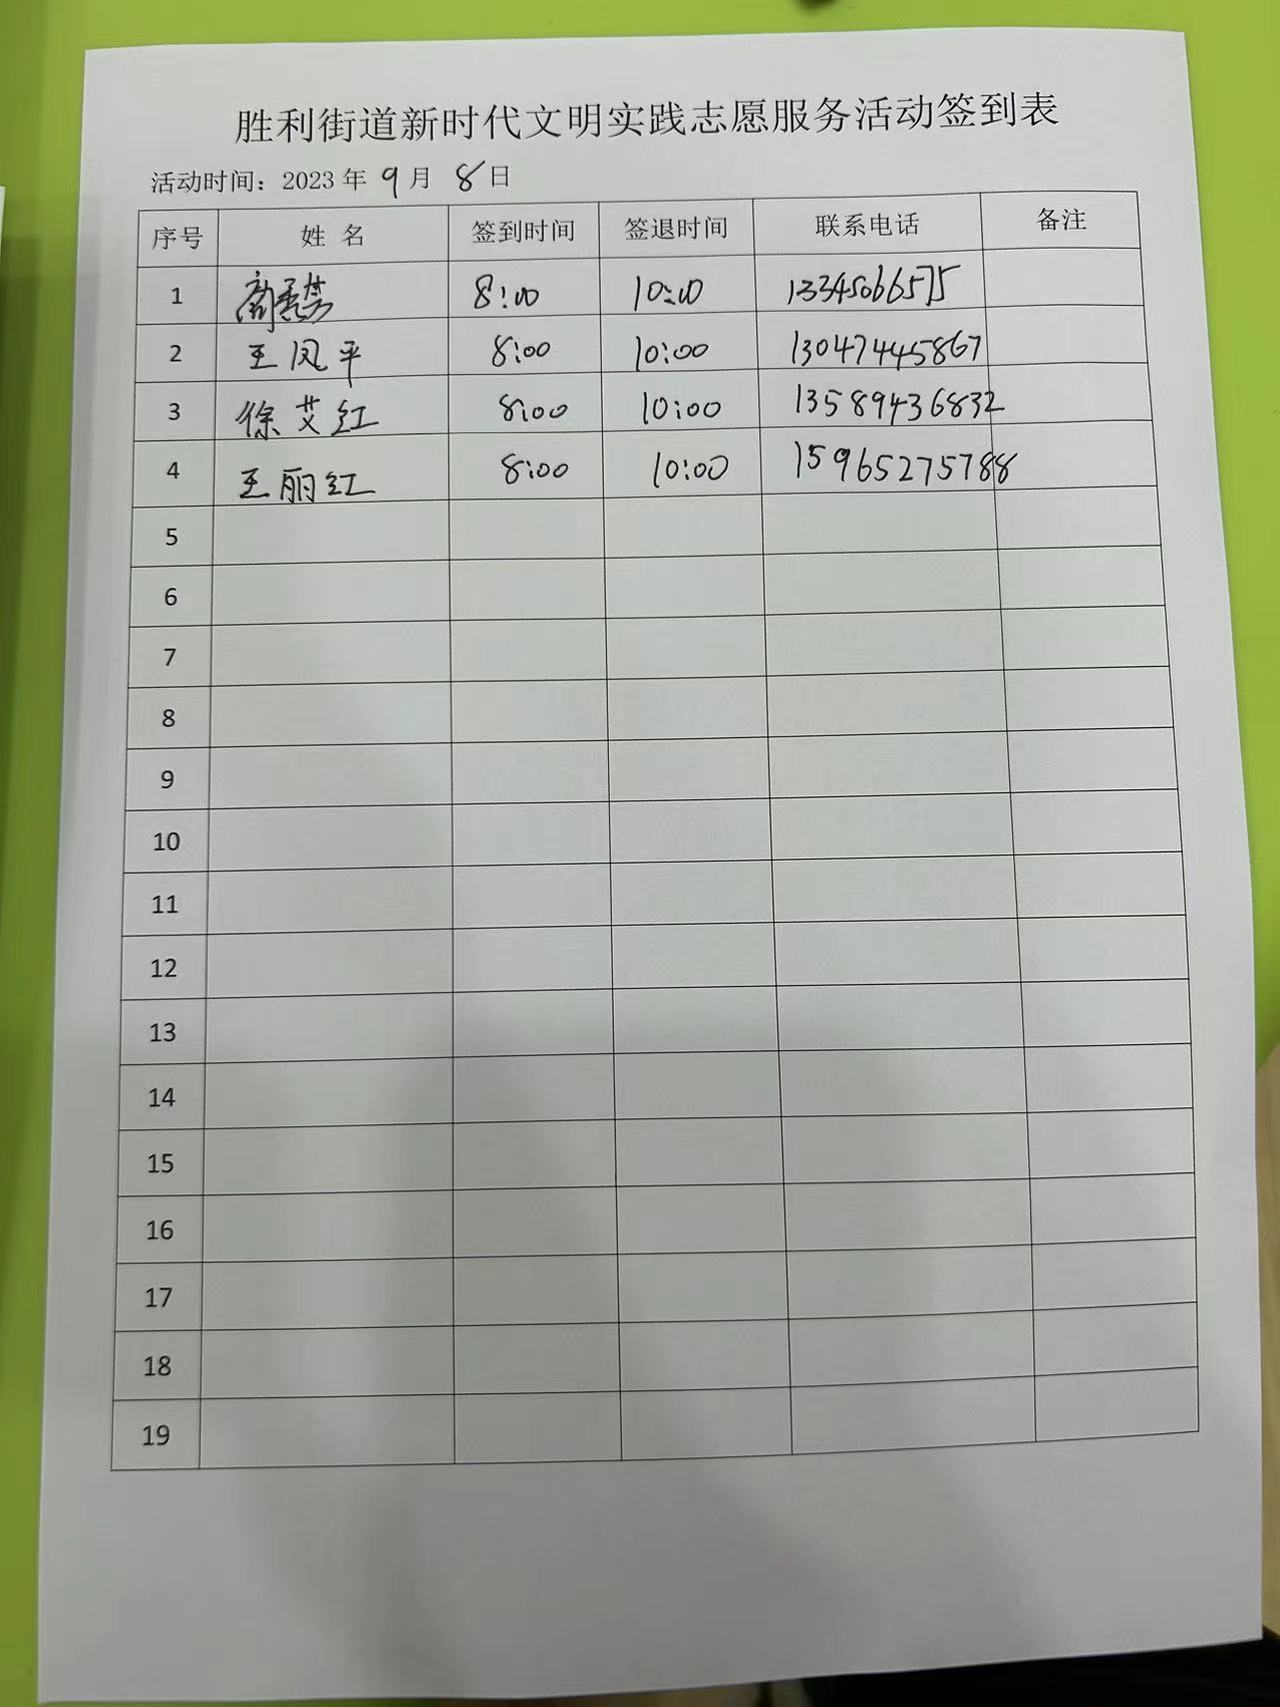 胜利街道新时代文明实践志愿服务活动签到表
活动时间：2023 年 9 月 8 日
序号 姓 名 签到时间 签退时间 联系电话 备注
1 8:00 10:00 13345066575
2 王凤平 8:00 10:00 13047445867
3 徐艾红 8:00 10:00 13589436832
4 王丽红 8:00 10:00 15965275788
5
6
7
8
9
10
11
12
13
14
15
16
17
18
19